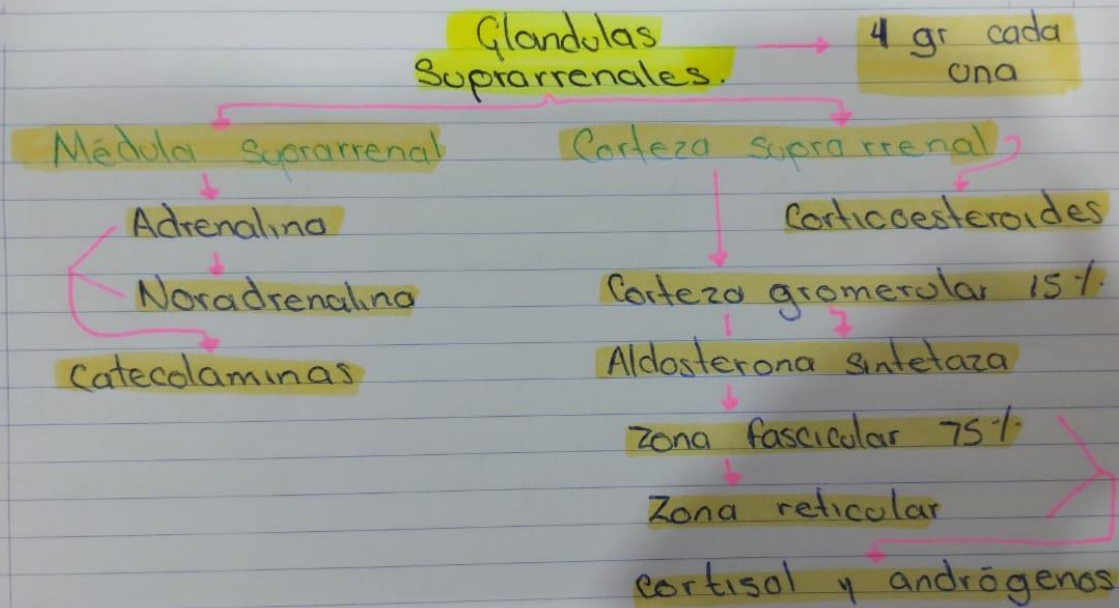 Glandulas
Suprarrenales.
4 gr cada
una
Médula suprarrenal
Adrenalina
Noradrenalina
Catecolaminas
Corteza suprarrenal
Corticoesteroides
Corteza gromerular 15%.
Aldosterona sintetaza
Zona fascicular 75%
Zona reticular
cortisol y andrógenos